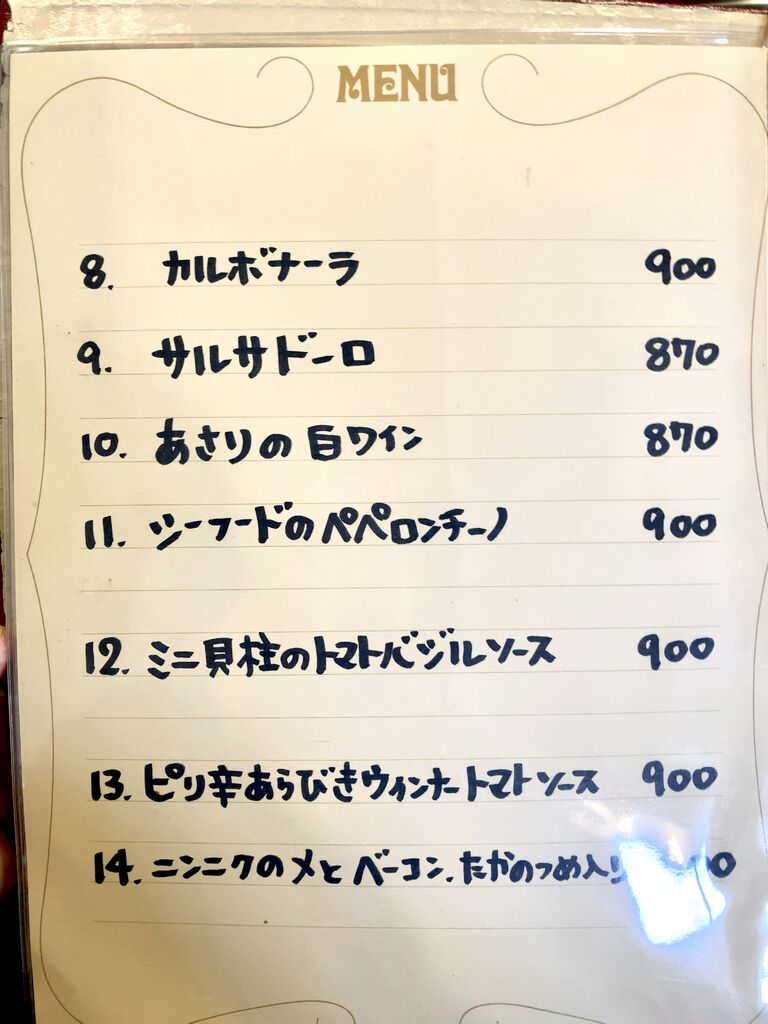 MENU
8. カルボナーラ 900
9. サルサドーロ 870
10. あさりの白ワイン 870
11. シーフードのペペロンチーノ 900
12. ミニ貝柱のトマトバジルソース 900
13. ピリ辛あらびきウィンナートマトソース 900
14. ニンニクのメとベーコン.たかのつめ入り